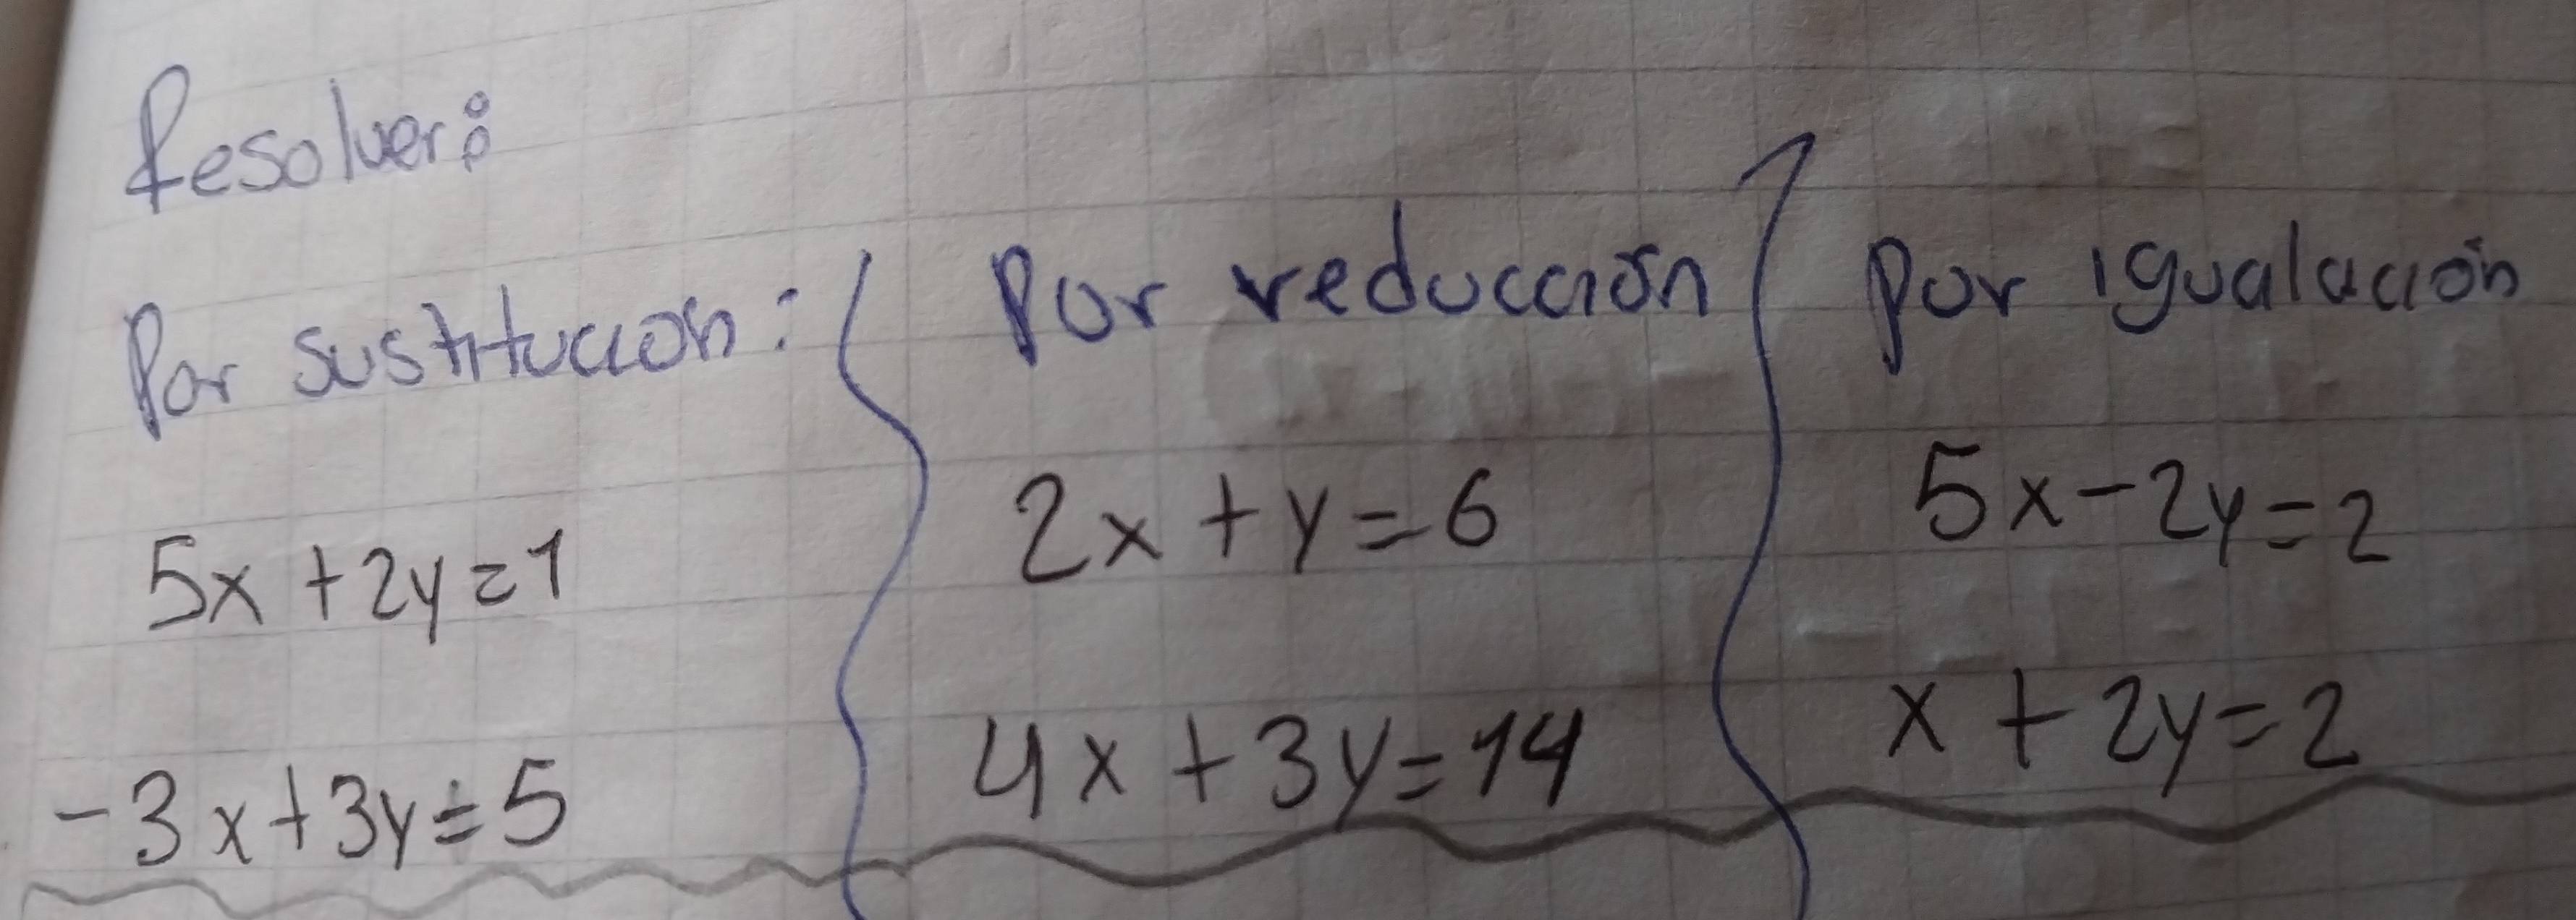 Resolver:
Por sustitución:
5x + 2y = 1
-3x + 3y = 5
Por reducción
2x + y = 6
4x + 3y = 14
Por igualación
5x - 2y = 2
x + 2y = 2